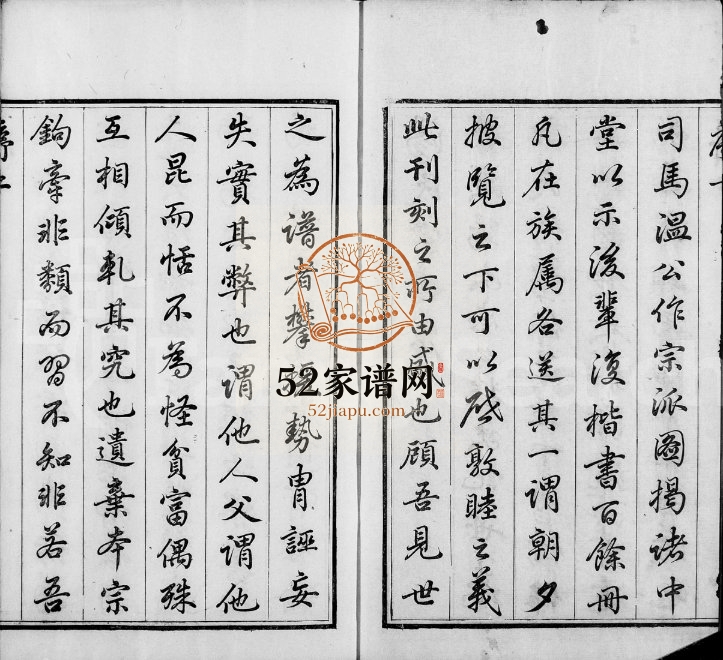 司馬溫公作宗派圖揭諸中
堂以示後輩復楷書百餘冊
凡在族属各送其一謂朝夕
披覽之下可以啟敦睦之義
此刊刻之所由盛也顧吾見世
之為譜者攀 勢胄誣妄
失實其弊也謂他人父謂他
人昆而恬不為怪貧富偶殊
互相傾軋其究也遺棄本宗
鉤牽非類而習不知非若吾
52家谱网
52jiapu.com